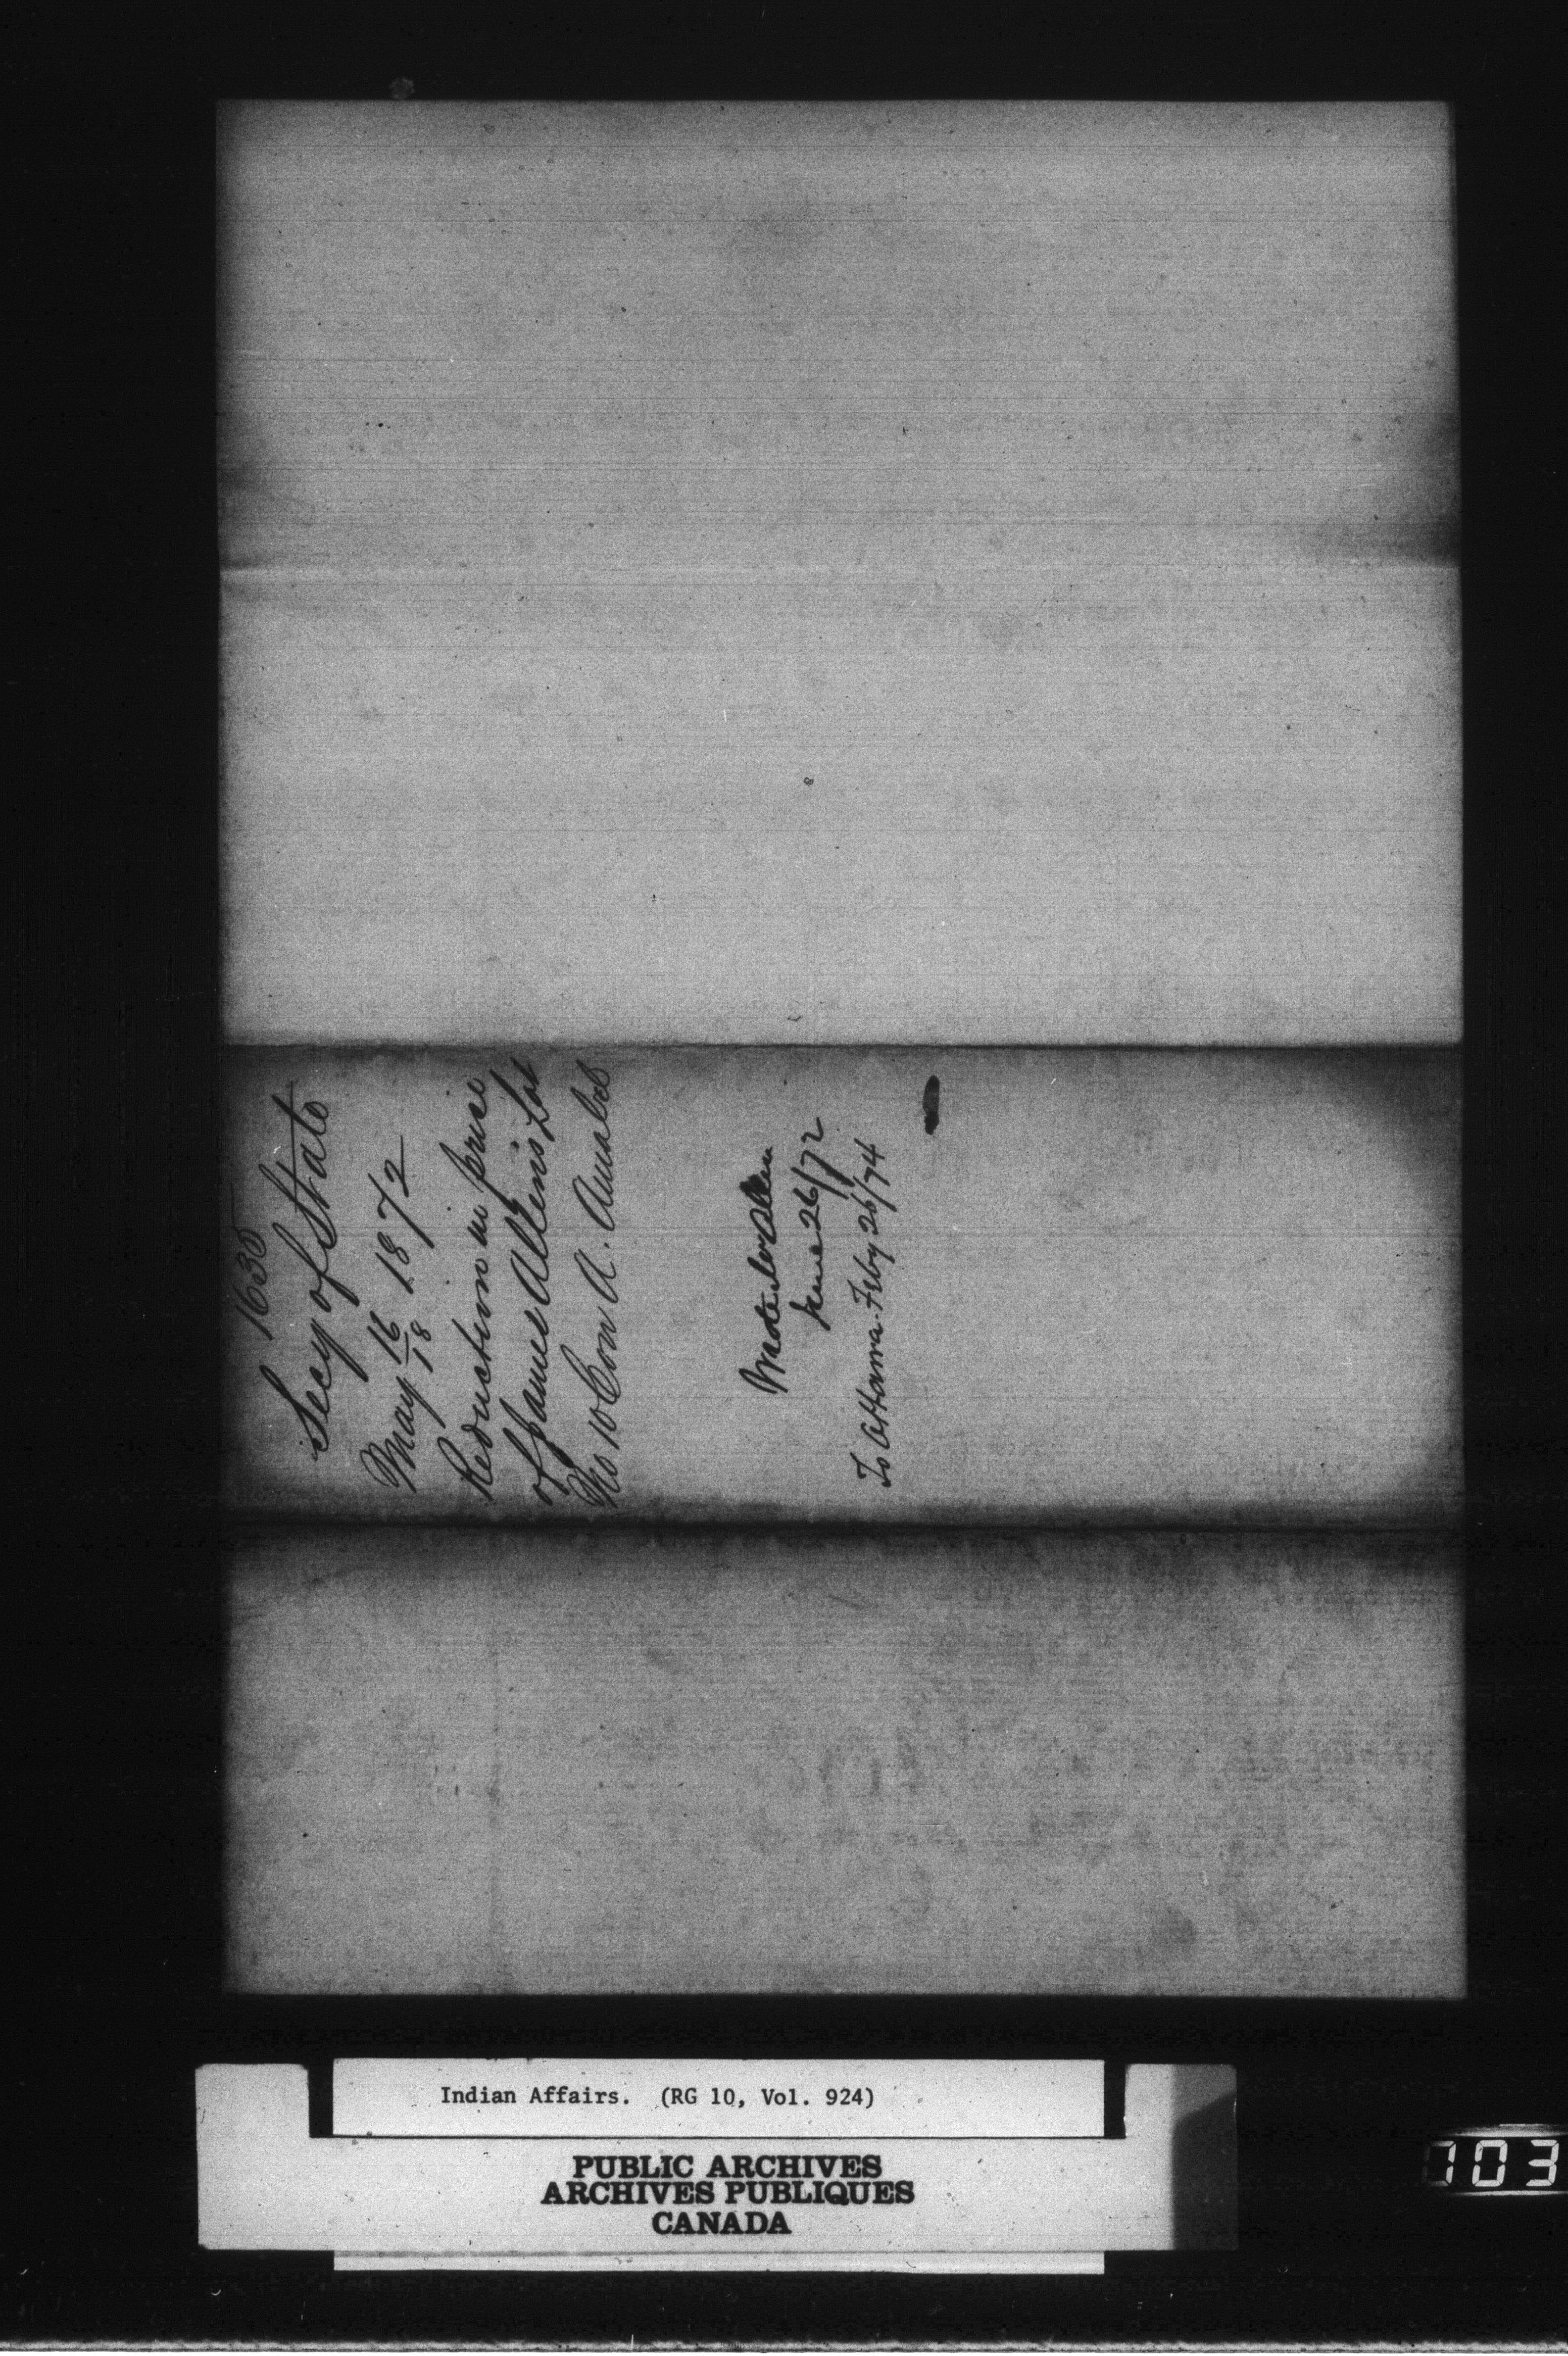 1635
Secy of State
May 16/18 1872
Reduction in price
of James Allen's Lot
No 10 Con A. Amabel
Wrote Jas Allen
June 26/72
To Ottawa Feby 26/74
Indian Affairs. (RG 10, Vol. 924)
PUBLIC ARCHIVES
ARCHIVES PUBLIQUES
CANADA
103